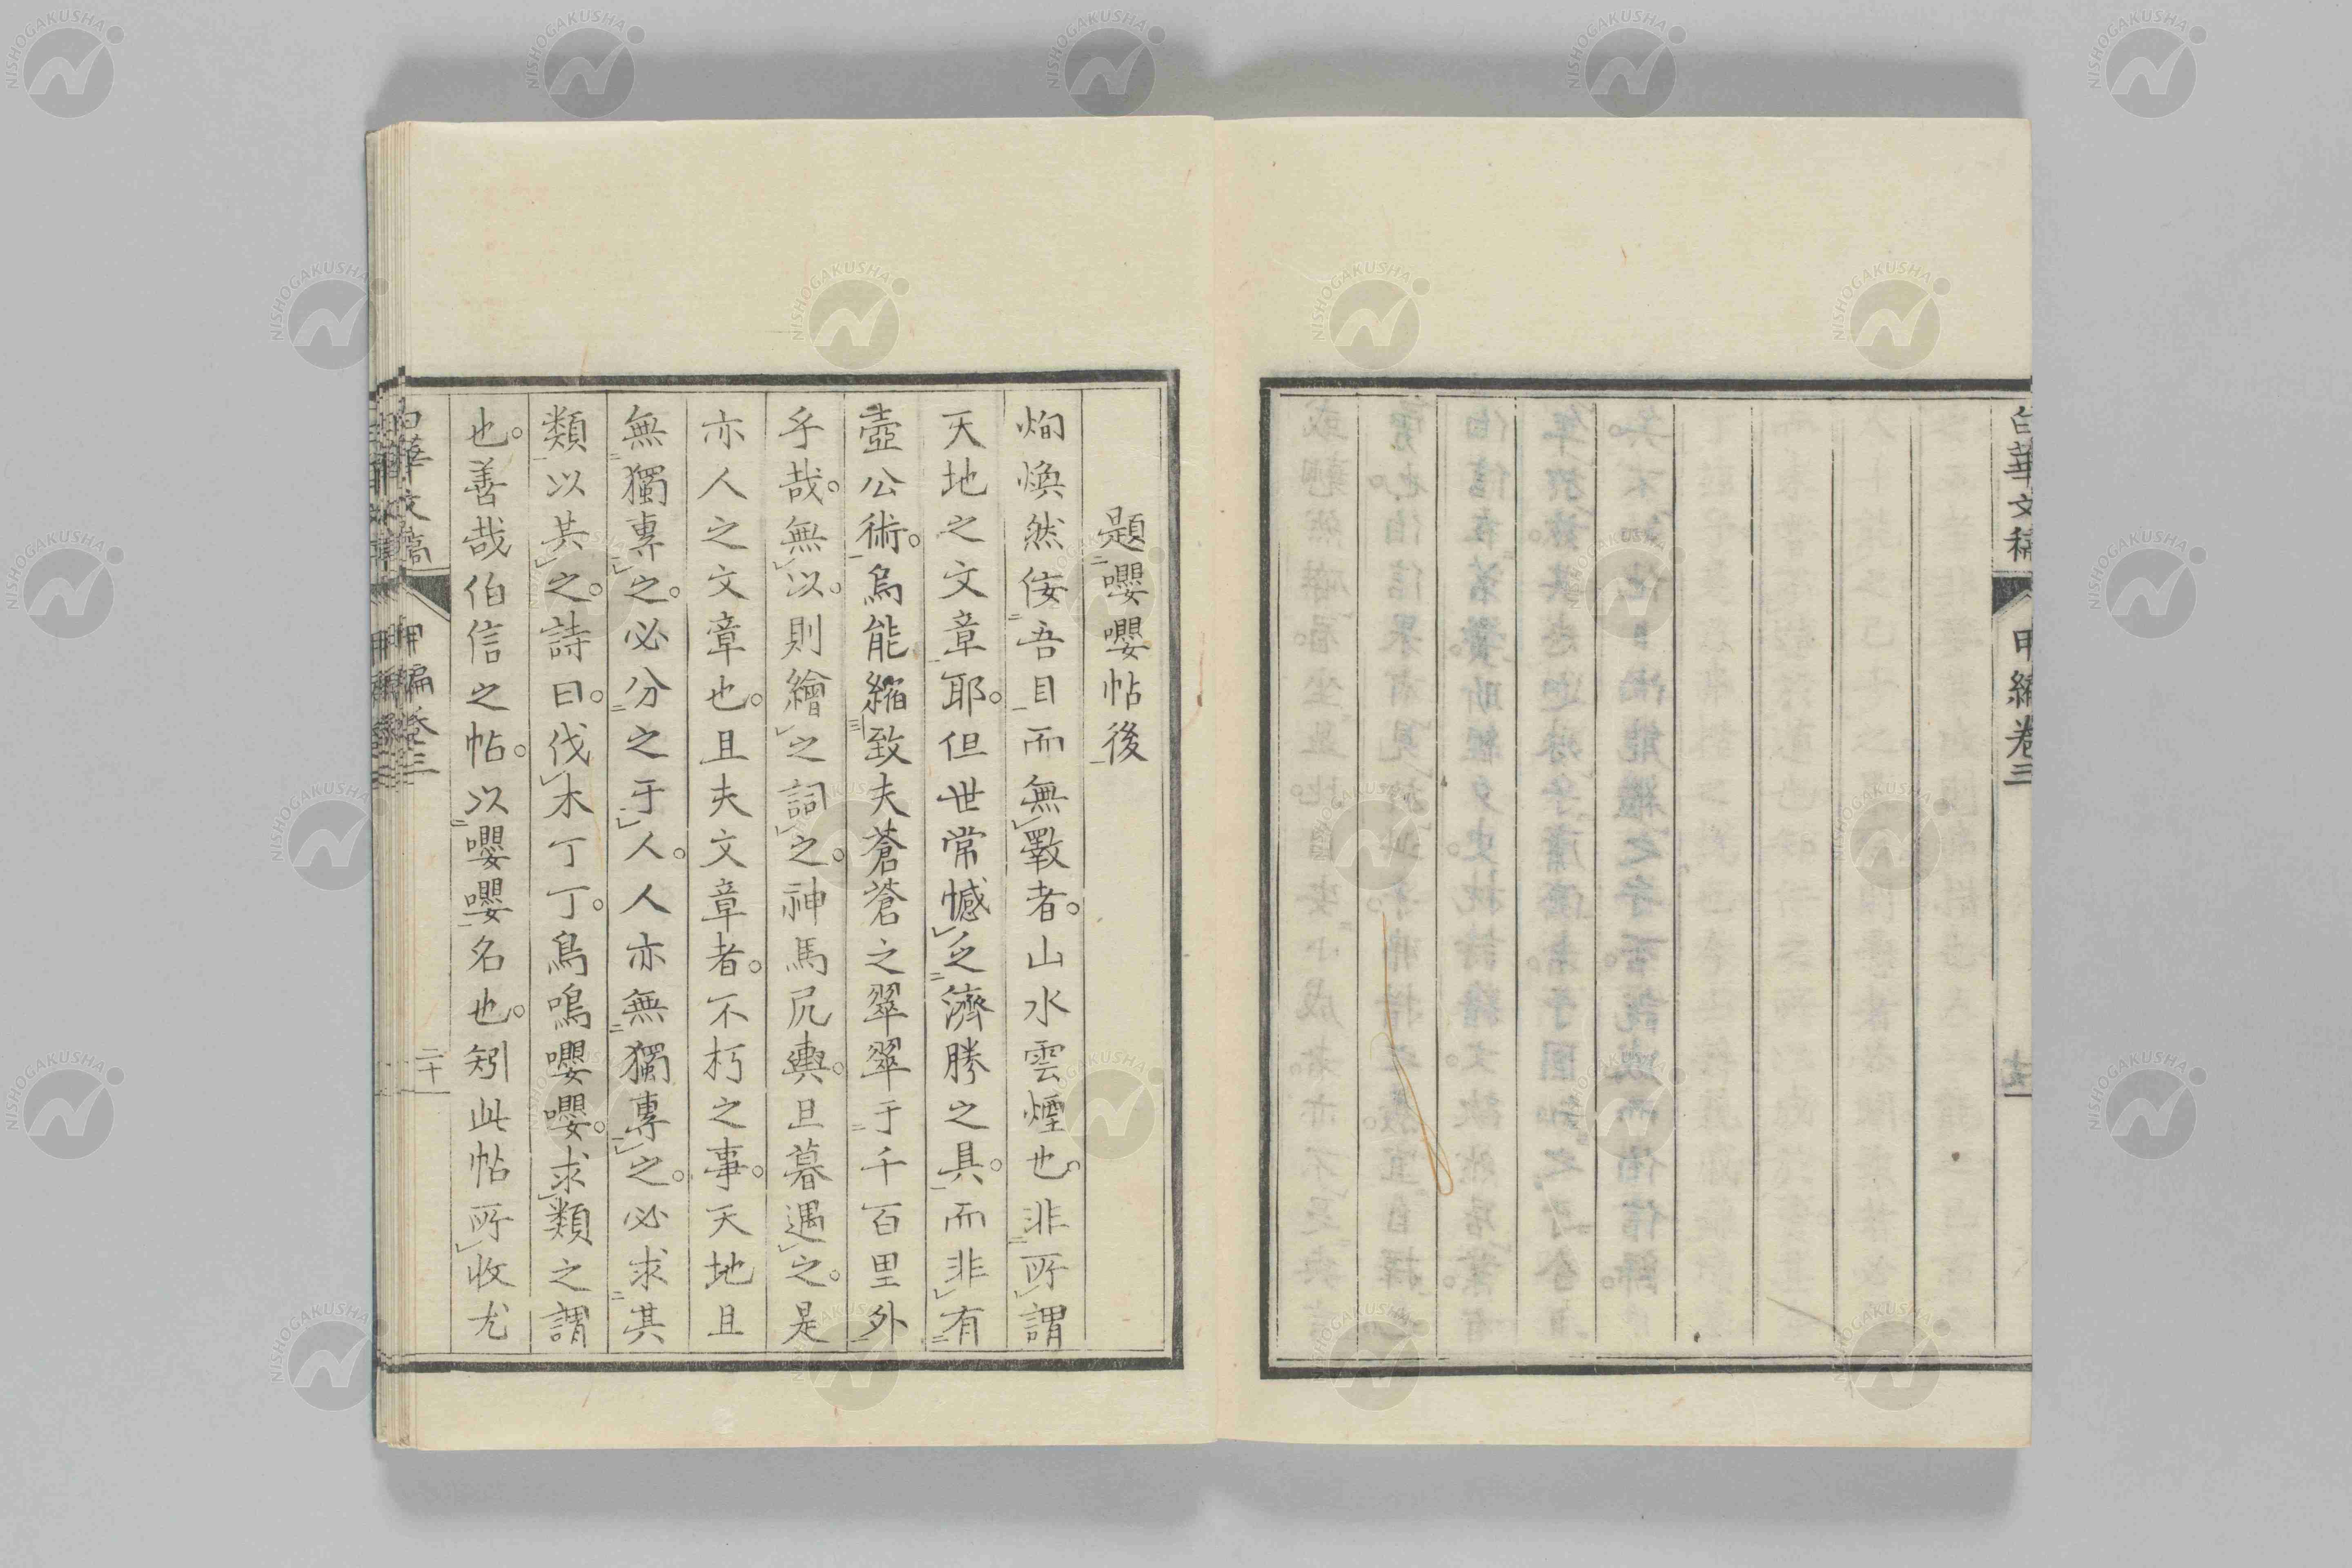 白華文稿 甲編卷三
題嚶嚶帖後
烱煥然侫吾目而無斁者。山水雲煙也。非所謂
天地之文章耶。但世常憾乏濟勝之具。而非有
壺公術。烏能縮致夫蒼蒼之翠翠于千百里外
乎哉。無以。則繪之詞之。神馬尻輿。旦暮遇之。是
亦人之文章也。且夫文章者。不朽之事。天地且
無獨專之。必分之于人。人亦無獨專之。必求其
類以共之。詩曰。伐木丁丁。鳥鳴嚶嚶。求類之謂
也。善哉伯信之帖。以嚶嚶名也。矧此帖所收尤
白華文稿 甲編卷三 二十
NISHOGAKUSHA